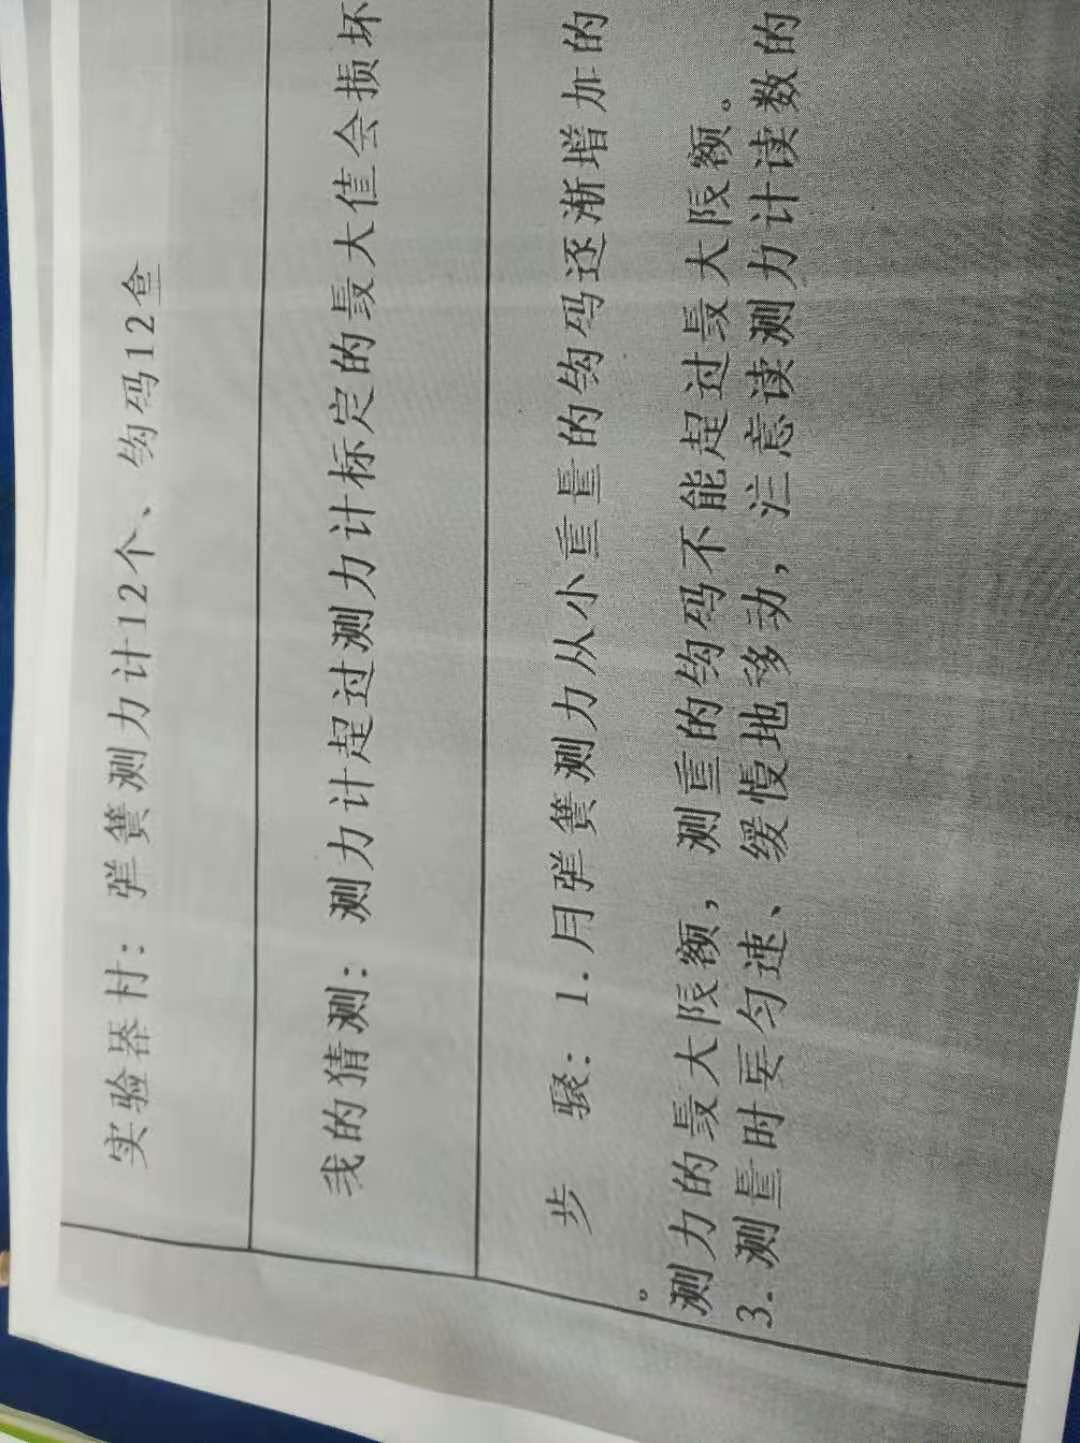 实验器材：弹簧测力计12个、钩码12盒
我的猜测：测力计超过测力计标定的最大值会损坏
步 骤：1.用弹簧测力从小重量的钩码逐渐增加的
。
测力的最大限额，测重的钩码不能超过最大限额。
3.测量时要匀速、缓慢地移动，注意读测力计读数的